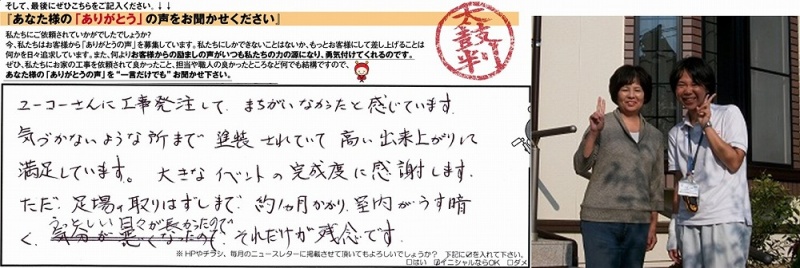 そして、最後にぜひこちらをご記入ください。↓↓
『あなた様の「ありがとう」の声をお聞かせください』
私たちにご依頼されていかがでしたでしょうか？
今、私たちはお客様から「ありがとうの声」を募集しています。私たちにしかできないことはないか、もっとお客様にして差し上げることは
何かを日々追求しています。また、何よりお客様からの励ましの声がいつも私たちの力の源になり、勇気付けてくれるのです。
ぜひ、私たちにお家の工事を依頼されて良かったこと、担当や職人の良かったところなど何でも結構ですので、
あなた様の「ありがとうの声」を"一言だけでも"お聞かせ下さい。
太鼓判
ユーコーさんに工事発注して、まちがいなかったと感じています。
気づかないような所まで塗装されていて高い出来上がりに
満足しています。大きなイベントの完成度に感謝します。
ただ、足場の取りはずしまで、約1ヶ月かかり、室内がうす暗
うっとしい日々が長かったので
く、気分が悪くなったので、それだけが残念です。
※HPやチラシ、毎月のニュースレターに掲載させて頂いてもよろしいでしょうか？ 下記に☑を入れて下さい。
□はい ☑イニシャルならOK □ダメ